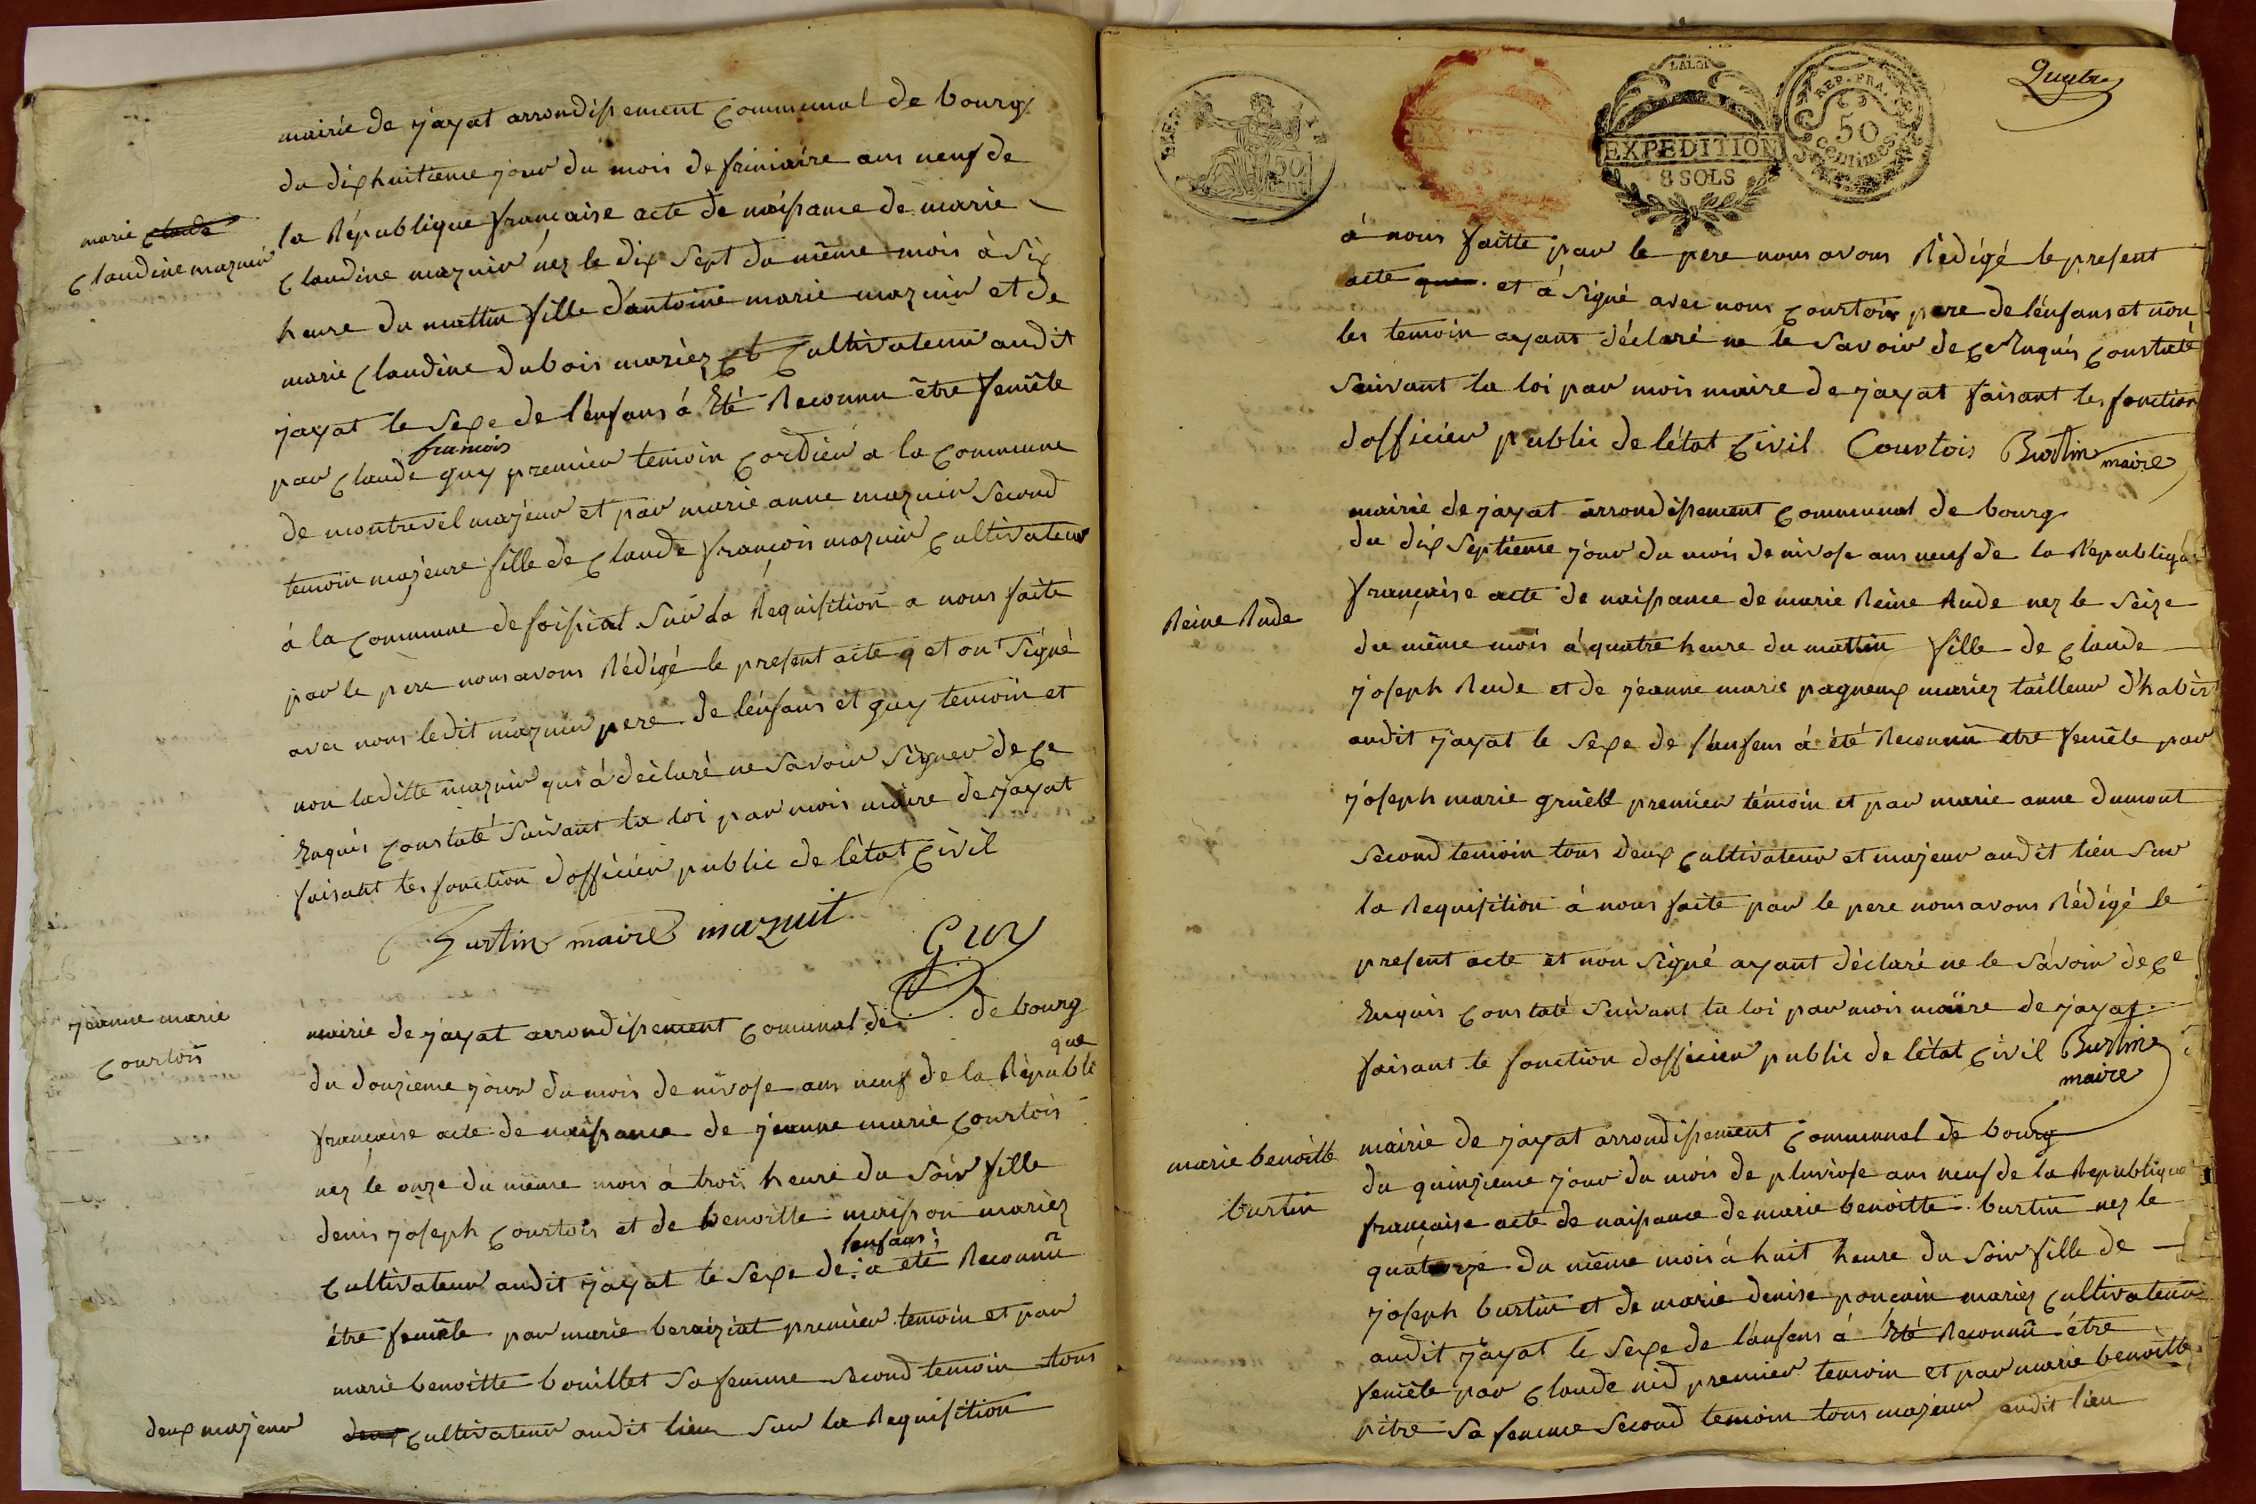 mairie de jayat arrondissement communal de bourg
du dixhuitieme jour du mois de frimaire ans neuf de
la République française acte de naissance de marie
marie claude
claudine mazuir
claudine mazuir nez le dix sept du même mois à six
heure du mattin fille d'antoine marie mazuir et de
marie claudine dubois mariez et cultivateur audit
jayat le sexe de l'enfans á été Reconnu être femèle
francois
par claude guy premier temoin cordier a la commune
de montrevel majeur et par marie anne mazuir second
temoin majeure fille de claude françois mazuir cultivateur
á la commune de foissiat sur la Requisition a nous faite
par le pere nous avons Rédigé le present acte q et ont signé
avec nous ledit mazuir pere de lénfans et guy temoin et
non laditte mazuir qui á déclaré ne savoir signer de ce
Enquis constaté suivant la loi par mois maire de jayat
faisant les fonction dofficier public de létat civil
Burtin maire mazuit
Guy
jéanne marie
courtois
mairie de jayat arrondissement comunal de de bourg
que
du douzieme jour du mois de nivose ans neuf de la Républi
française acte de naissance de jeanne marie courtois
nez le onze du même mois á trois heure du soir fille
denis joseph courtois et de benoitte maisson mariez
lenfans
cultivateur audit jayat le sexe de a été Reconnu
être femèle par marie beraiziat premier temoin et par
marie benoitte bouillet sa femme second temoin tous
deux majeur
deux cultivateur audit lieu sur la Requisition
Quatre
REP. FRA.
50 CENT
LA LOI
EXPEDITION
8 SOLS
REP. FRA.
50
centimes
á nous faitte par le pere nous avons Rédigé le present
acte que et á signé avec nous courtois pere de lénfans et non
les temoin ayant déclaré ne le savoir de ce Enquis constaté
suivant la loi par mois maire de jayat faisant les fonction
dofficier public de létat civil Courtois Burtin maire
mairie de jayat arrondissement communal de bourg
du dix septieme jour du mois de nivose ans neuf de la République
Reine Rude
française acte de naissance de marie Reine Rude nez le seize
du même mois á quatre heure du mattin fille de claude
joseph Rude et de jéanne marie pagneux mariez tailleur d'habis
audit jayat le sexe de l'enfens á été Reconnu etre femèle par
joseph marie gruell premier témoin et par marie anne dumont
second temoin tous deux cultivateur et majeur audit lieu sur
la Requisition á nous faite par le pere nous avons Rédigé le
present acte et non signé ayant déclaré ne le sávoir de ce
Enquis constaté suivant la loi par mois maire de jayat
faisant le fonction dofficier public de létat civil Burtin
maire
mairie de jayat arrondissement communal de bourg
marie benoitte
burtin
du quinzieme jour du mois de pluviose ans neuf de la Republique
française acte de naissance de marie benoitte burtin nez le
quatorze du même mois á huit heure du soir fille de
joseph burtin et de marie denise poncin mariez cultivateur
audit jayat le sexe de lánfens á été Reconnu être
femèle par claude nid premier temoin et par marie benoitte
pitre sa femme second temoin tous majeur audit lieu